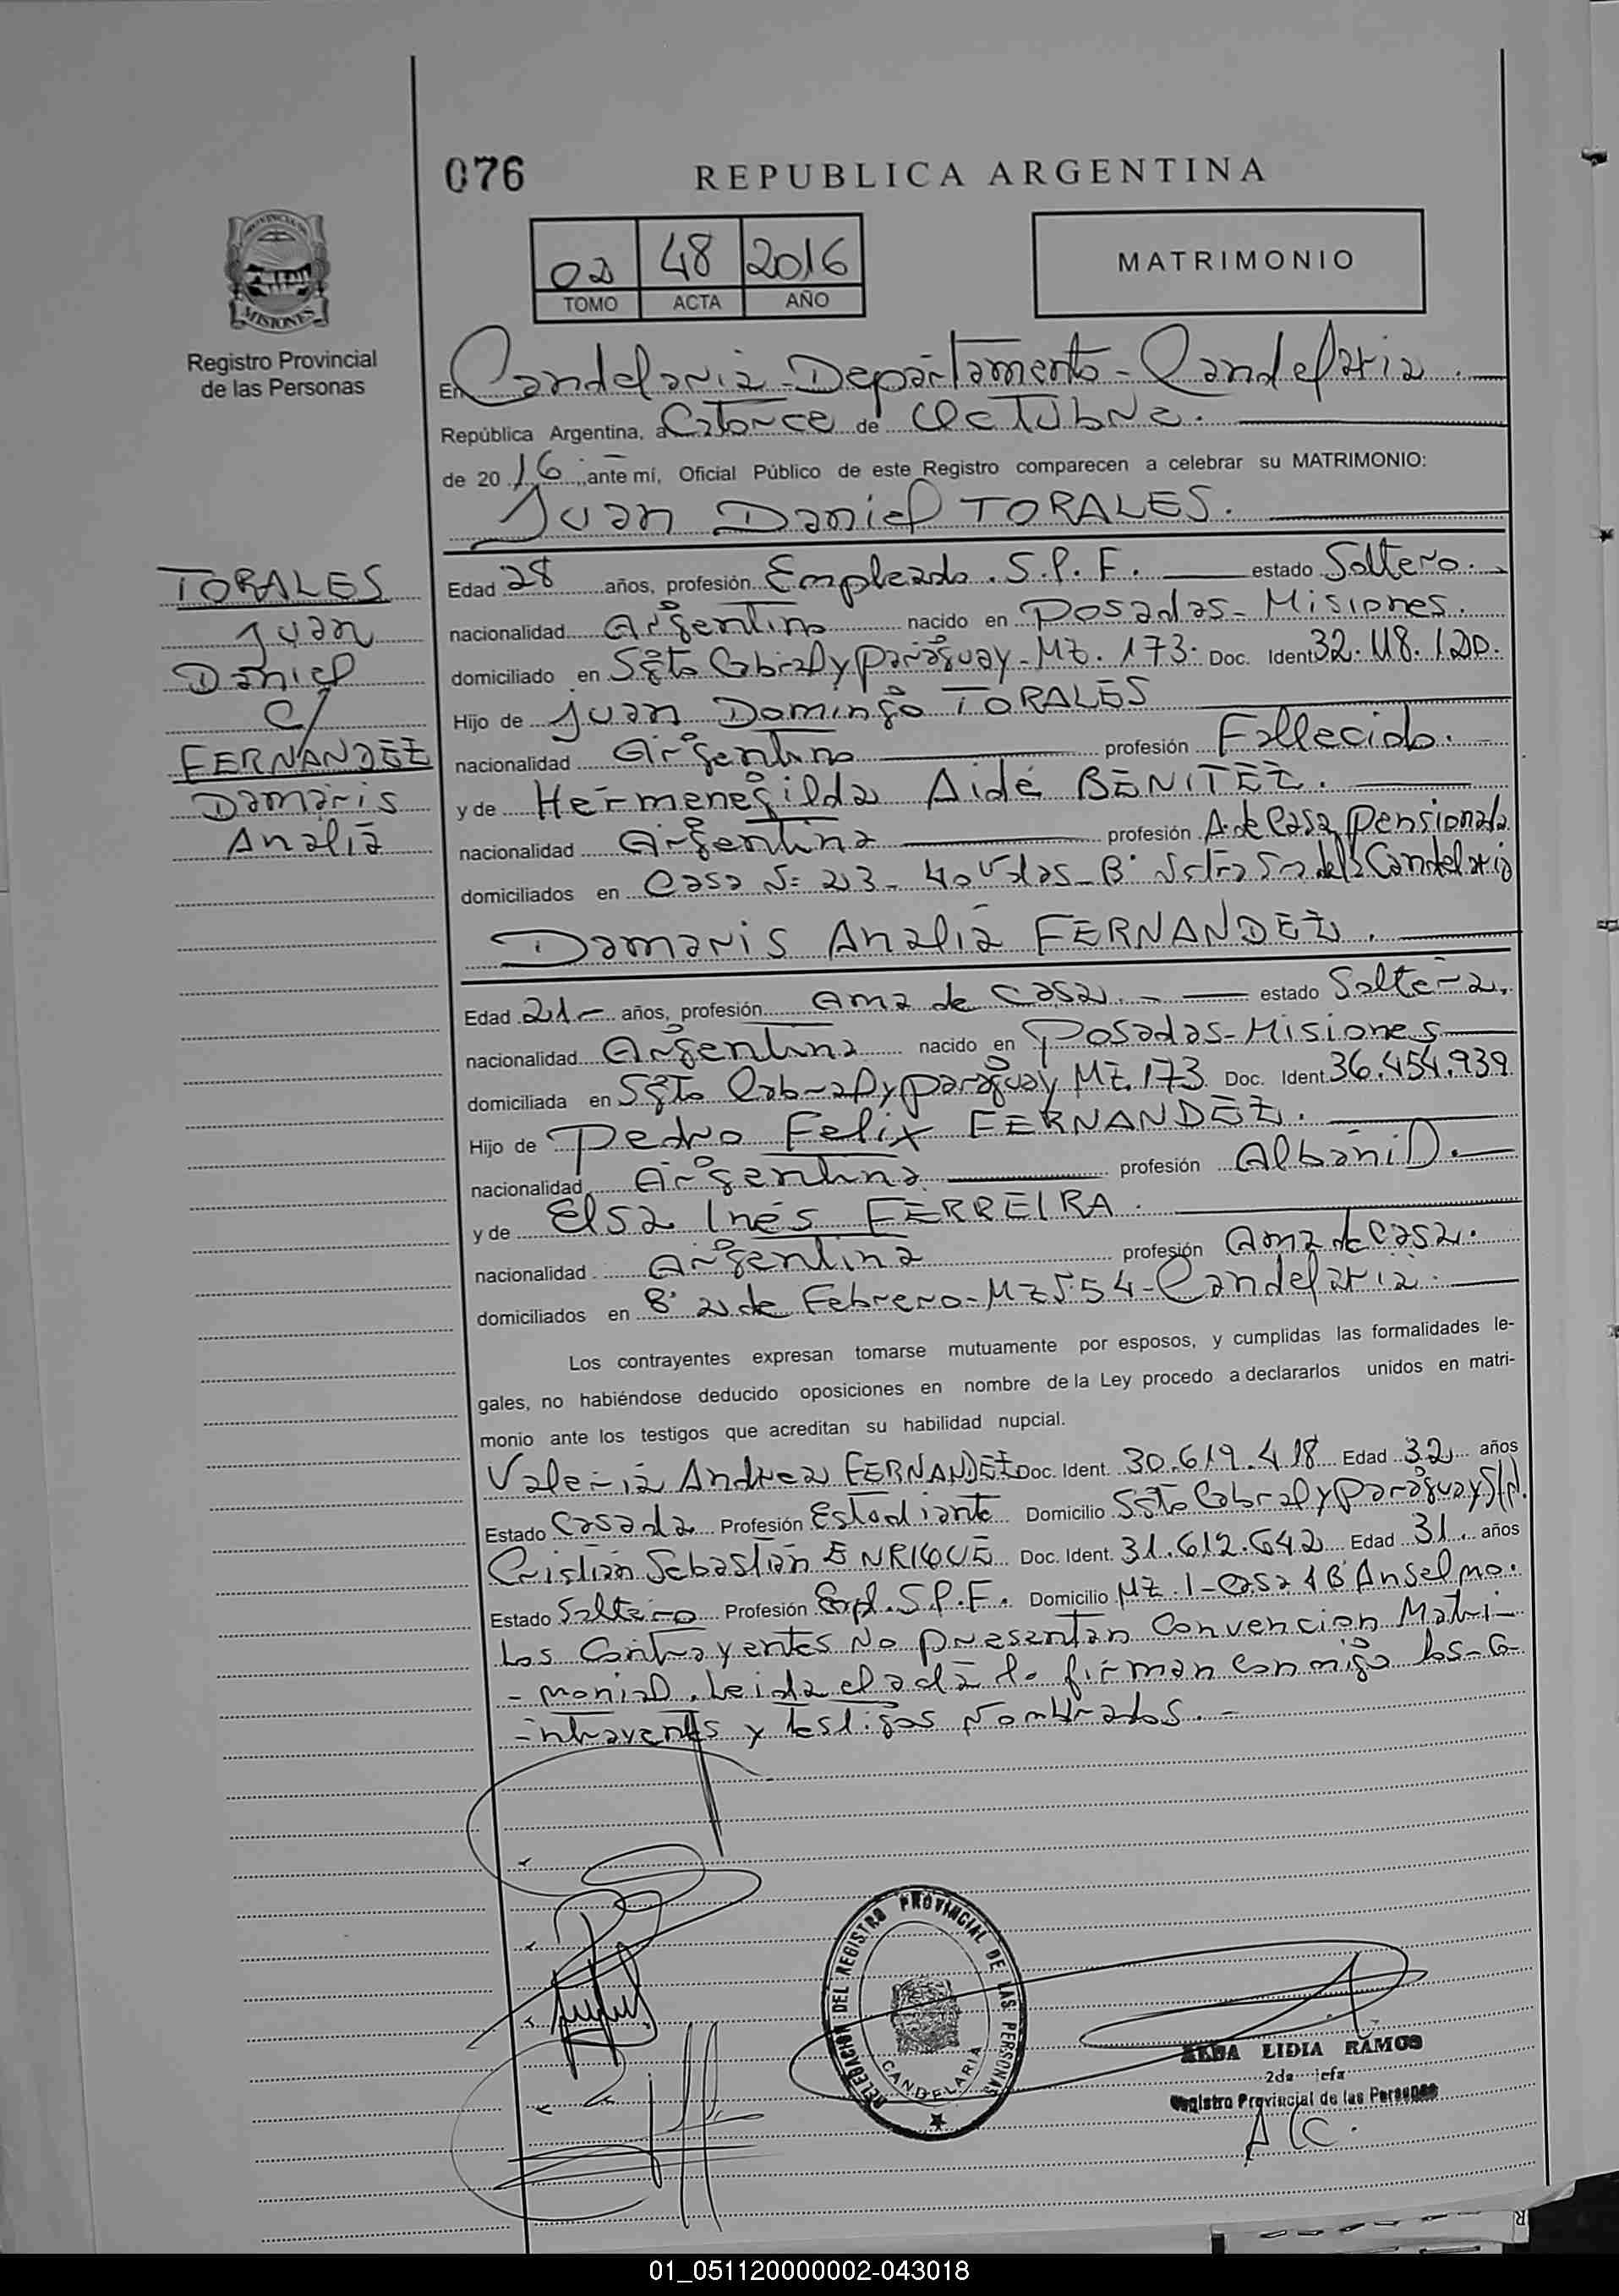 076
REPUBLICA ARGENTINA
02 48 2016
TOMO ACTA AÑO
MATRIMONIO
PROVINCIA DE
MISIONES
Registro Provincial
de las Personas
En Candelaria - Departamento - Candelaria.
República Argentina, a Catorce de Octubre.
de 20 16 ante mí, Oficial Público de este Registro comparecen a celebrar su MATRIMONIO:
Juan Daniel TORALES.
TORALES
Juan
Daniel
C/
FERNANDEZ
Damaris
Analia
Edad 28 años, profesión Empleado. S.P.F. estado Soltero.
nacionalidad Argentino nacido en Posadas - Misiones.
domiciliado en Sgto Cabral y Paraguay - MZ. 173. Doc. Ident. 32.118.120.
Hijo de Juan Domingo TORALES
nacionalidad Argentino profesión Fallecido.
y de Hermenegilda Aidé BENITEZ.
nacionalidad Argentina profesión A. de Casa Pensionada
domiciliados en Casa N= 213 - 40 Vdas - B° Sra de la Candelaria
Damaris Analia FERNANDEZ.
Edad 21 - años, profesión Ama de Casa. - estado Soltera.
nacionalidad Argentina nacido en Posadas - Misiones
domiciliada en Sgto Cabral y Paraguay MZ. 173 Doc. Ident. 36.454.939
Hijo de Pedro Felix FERNANDEZ.
nacionalidad Argentina profesión Albañil.
y de Elsa Inés FERREIRA.
nacionalidad Argentina profesión Ama de Casa.
domiciliados en B° 2 de Febrero - MZ 554 - Candelaria.
Los contrayentes expresan tomarse mutuamente por esposos, y cumplidas las formalidades le-
gales, no habiéndose deducido oposiciones en nombre de la Ley procedo a declararlos unidos en matri-
monio ante los testigos que acreditan su habilidad nupcial.
Valeria Andrea FERNANDEZ Doc. Ident. 30.619.418 Edad 32 años
Estado Casada Profesión Estudiante Domicilio Sgto Cabral y Paraguay S/N.
Cristian Sebastián ENRIQUE Doc. Ident. 31.612.642 Edad 31. años
Estado Soltero Profesión Empl. S.P.F. Domicilio MZ. 1 - Casa 1 B° Anselmo.
Los Contrayentes No presentan Convencion Matri-
- monial. Leida el acta la firman conmigo los Co-
- ntrayentes y testigos Nombrados. -
DELEGACION DEL REGISTRO PROVINCIAL DE LAS PERSONAS
CANDELARIA
LIDIA RAMOS
2da jefa
Registro Provincial de las Personas
A/C.
01_051120000002-043018